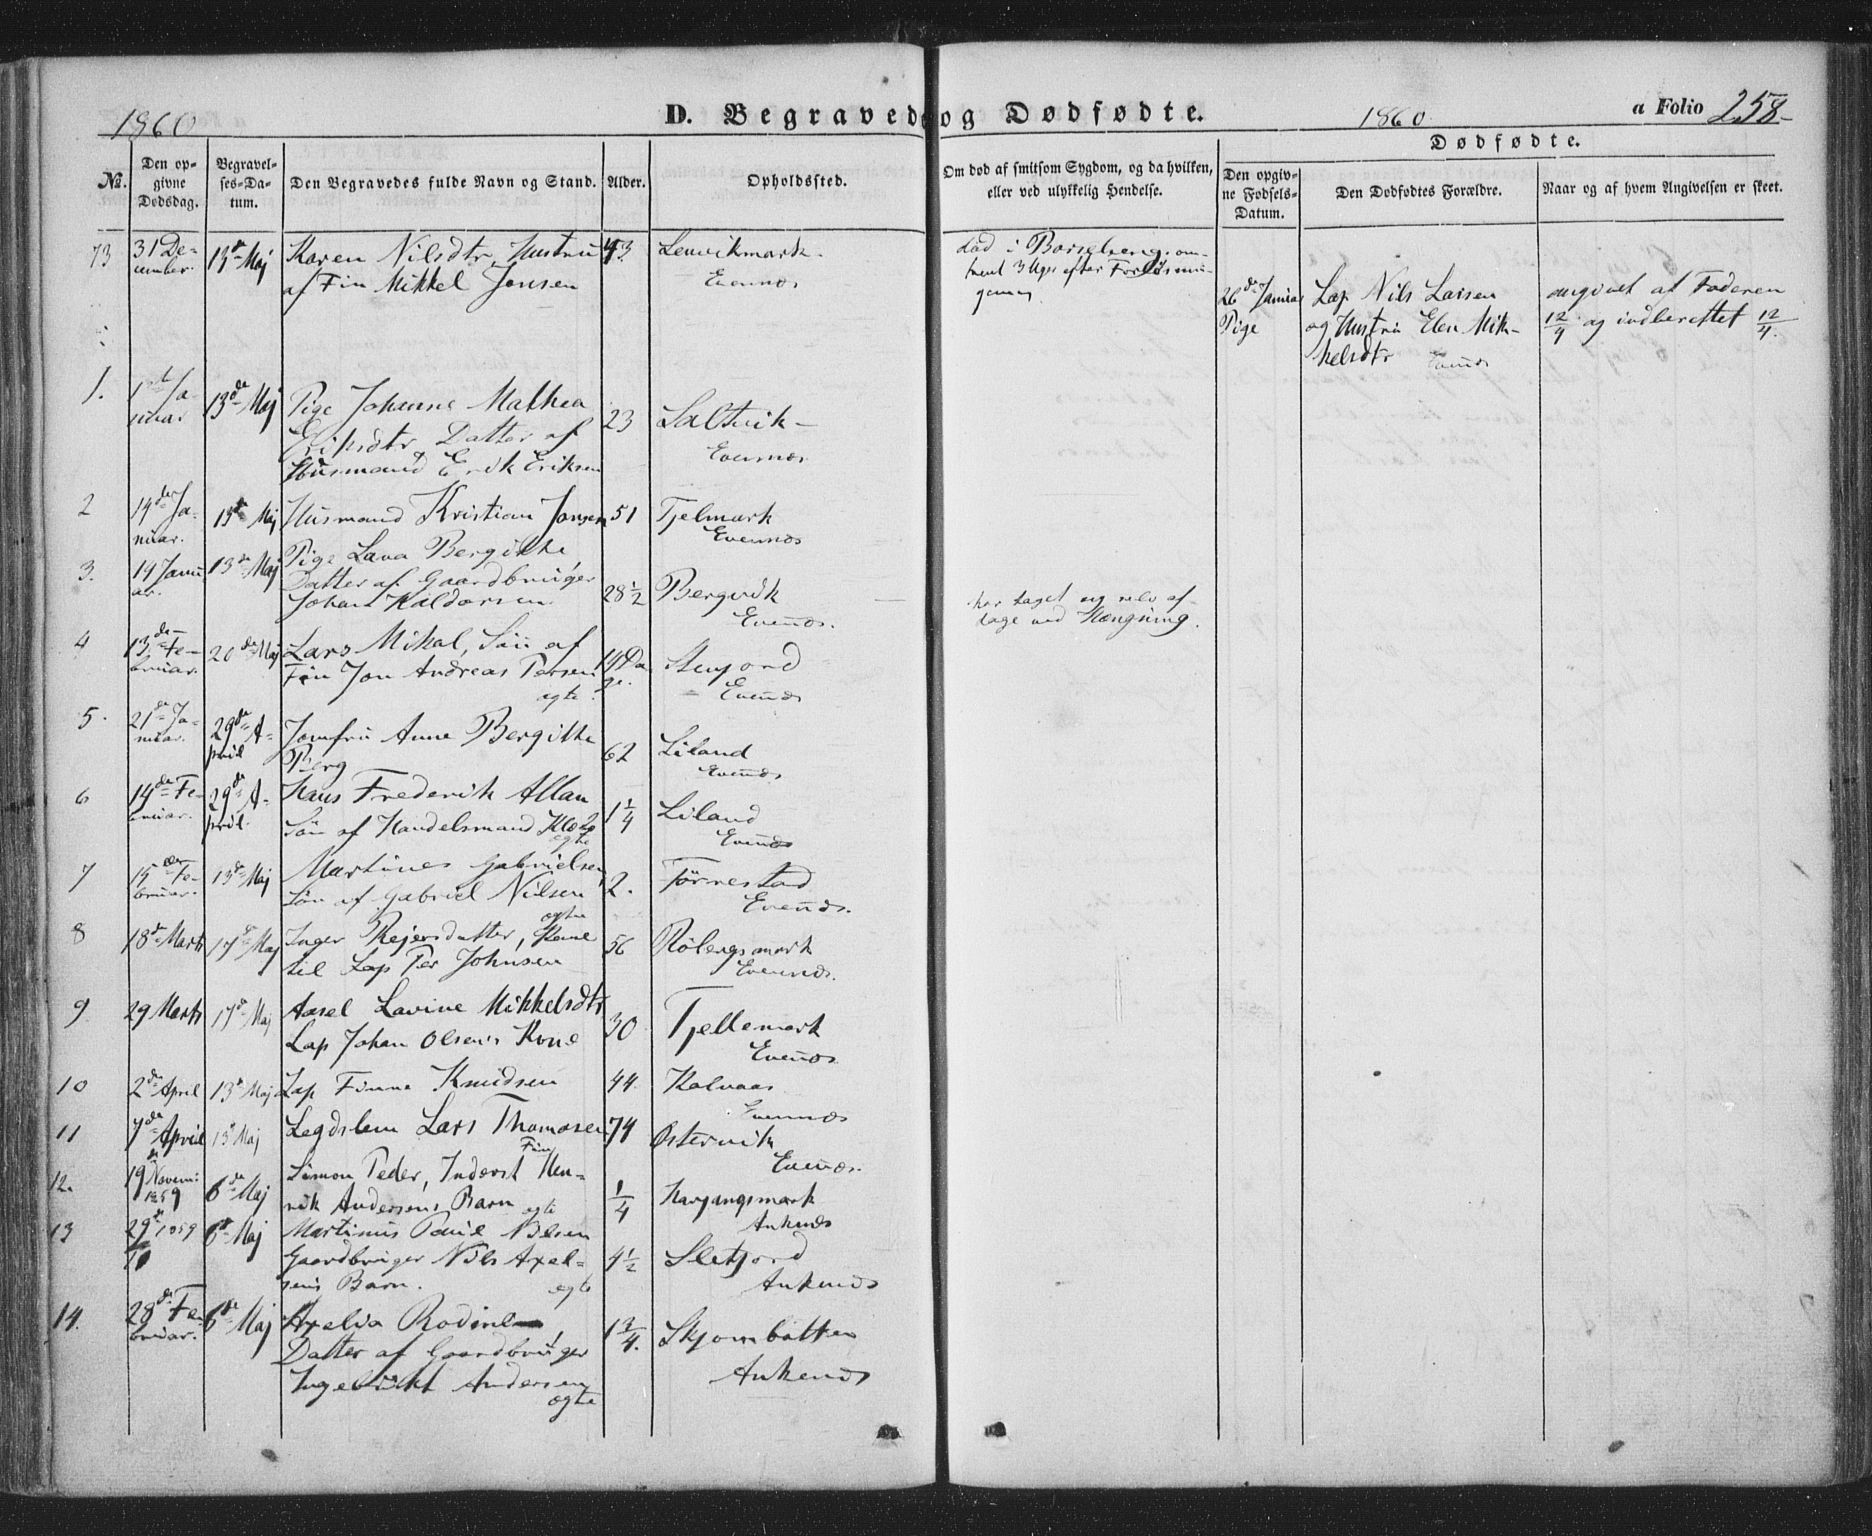 1860
D. Begravede og Dødfødte.
1860
a Folio 258-
No.
Den opgivne Dødsdag.
Begravelses-Datum.
Den Begravedes fulde Navn og Stand.
Alder.
Opholdssted.
Om død af smitsom Sygdom, og da hvilken,
eller ved ulykkelig Hendelse.
Dødfødte.
Den opgivne Fødsels-Datum.
Den Dødfødtes Forældre.
Naar og af hvem Angivelsen er skeet.
73 31 December. 13de Maj Karen Nilsdtr, Hustru 43 Lenvikmark
af Fin Mikkel Jonsen Evenæs
død i Barselseng om-
trent 3 Uger efter Forløsnin-
gen
26de Januar Lap Nils Larsen angivet af Faderen
Pige og Hustru Elen Mik- 12/4 og indberettet 12/4.
kelsdtr Evenæs
1. 1ste Januar 13de Maj Pige Johanne Mathea
Eriksdtr Datter af 23 Saltvik
Husmand Erik Eriksen Evenæs
2 14de Januar. 13de Maj Husmand Kristian Jonsen 51 Tjelmark
Evenæs
3. 19 Januar. 13de Maj Pige Lava Bergitte
Datter af Gaardbruger
Johan Haldorsen 28 1/2 Bergvik
Evenæs.
har taget sig selv af
dage ved Hængning.
4 13de Februar. 20de Maj Lars Mikal, Søn af
Fin Jon Andreas Persen 14 Dage. Stenjord
egte. Evenæs
5. 21de Januar. 29de April Jomfru Anne Bergitte
Berg 62 Liland
Evenæs
6 14de Februar. 29de April. Hans Frederik Allan
Søn af Handelsmand Klæbo 1 1/4 Liland
egte Evenæs
7 15de Februar. 13de Maj Martines Gabrielsen
Søn af Gabriel Nilsen 2. Tørrestad
egte Evenæs.
8 18de Marts 17de Maj Inger Rejersdatter, Kone 56 Røbergsmark
til Lap Per Johnsen Evenæs.
9 29 Marts 17de Maj Aasel Lavine Mikkelsdtr 30 Tjellemark
Lap Johan Olsens Kone Evenæs
10 2de April 13de Maj Lap Finne Knudsen 44 Kalvaas
Evenæs
11 7de April 13de Maj Legdslem Lars Thomasen 74 Østervik
Evenæs.
12. 19de Novem: 1859 6de Maj Simon Peder, Inderst Fin Hen-
rik Andersens Barn egte 1/4 Harjangsmark
Ankenæs
13 29de 1859 10 6te Maj Martinus Paul Nilsen
Gaardbruger Nils Axel- 4 1/2 Sletjord
sens Barn. egte Ankenæs
14. 28de Februar. 6de Maj Axelia Rodine
Datter af Gaardbruger 1 3/4. Skjombotten
Ingebrikt Andersen Ankenæs
egte